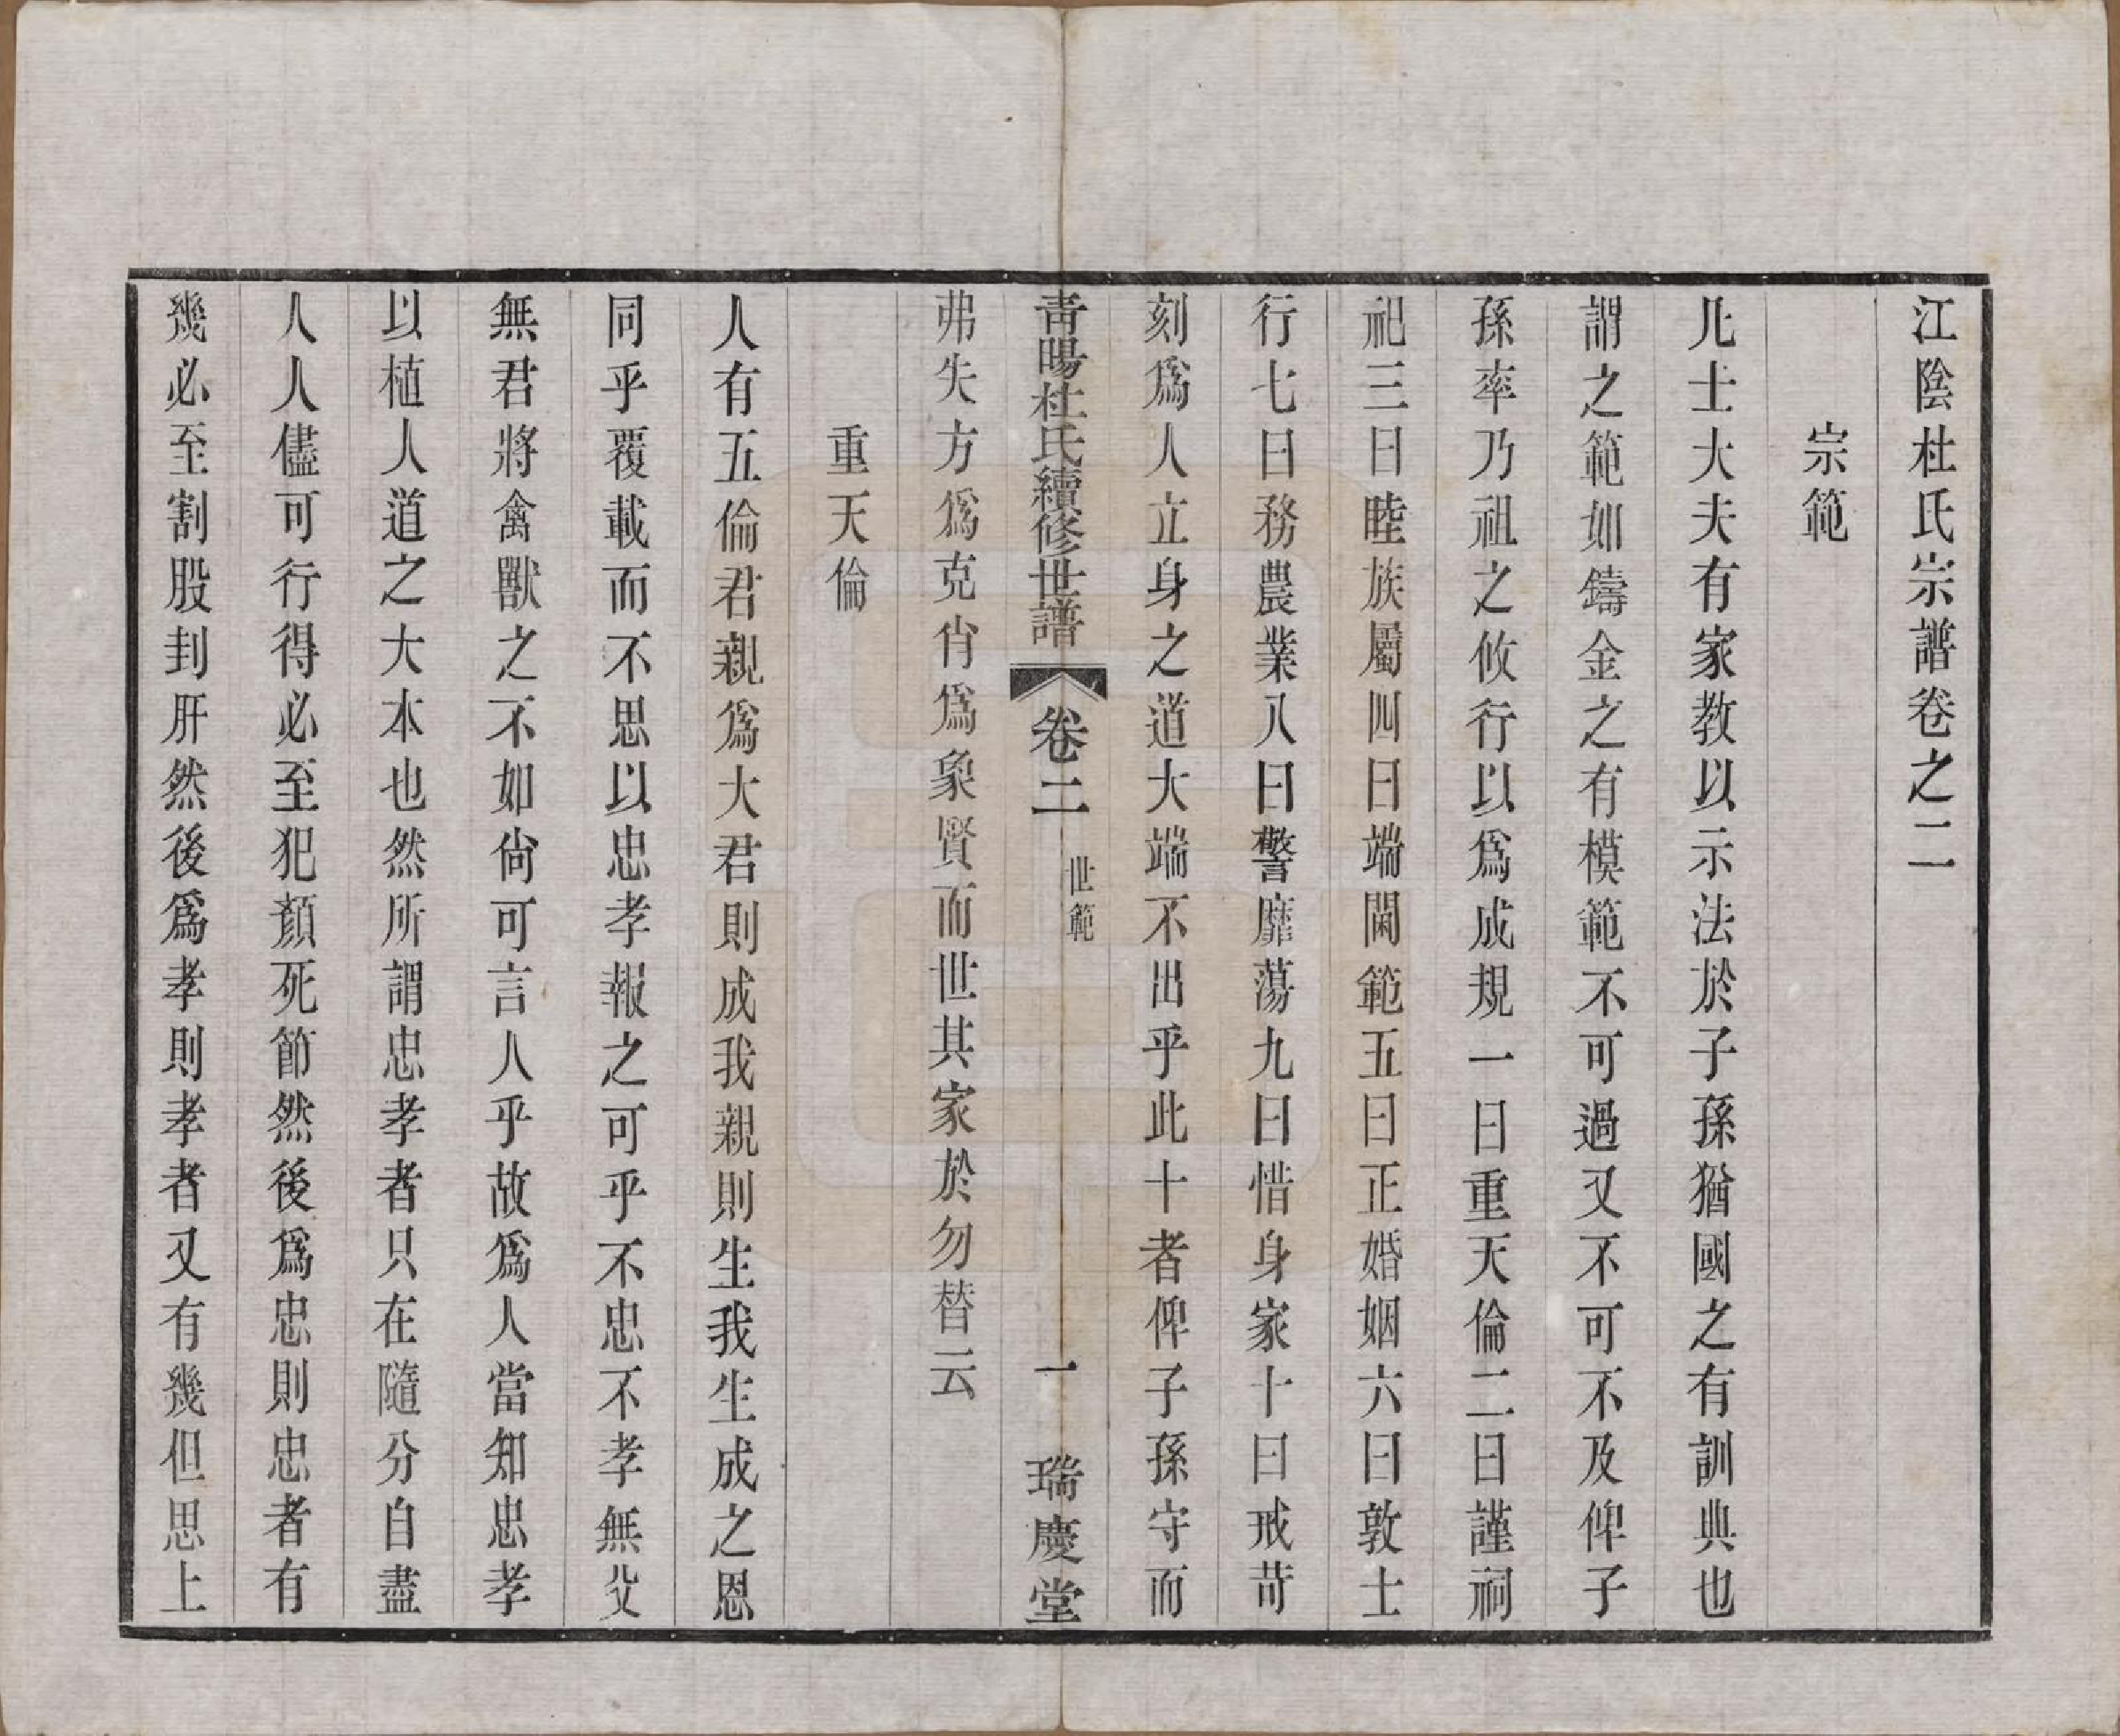 江陰杜氏宗譜卷之二
宗範
凡士大夫有家教以示法於子孫猶國之有訓典也
謂之範如鑄金之有模範不可過又不可不及俾子
孫率乃祖之攸行以爲成規一曰重天倫二曰謹祠
祀三曰睦族屬四曰端閫範五曰正婚姻六曰敦士
行七曰務農業八曰警靡蕩九曰惜身家十曰戒苛
刻爲人立身之道大端不出乎此十者俾子孫守而
靑暘杜氏續修世譜 卷二 世範 一 瑞慶堂
弗失方爲克肖爲象賢而世其家於勿替云
重天倫
人有五倫君親爲大君則成我親則生我生成之恩
同乎覆載而不思以忠孝報之可乎不忠不孝無父
無君將禽獸之不如尙可言人乎故爲人當知忠孝
以植人道之大本也然所謂忠孝者只在隨分自盡
人人儘可行得必至犯顏死節然後爲忠則忠者有
幾必至割股刲肝然後爲孝則孝者又有幾但思上